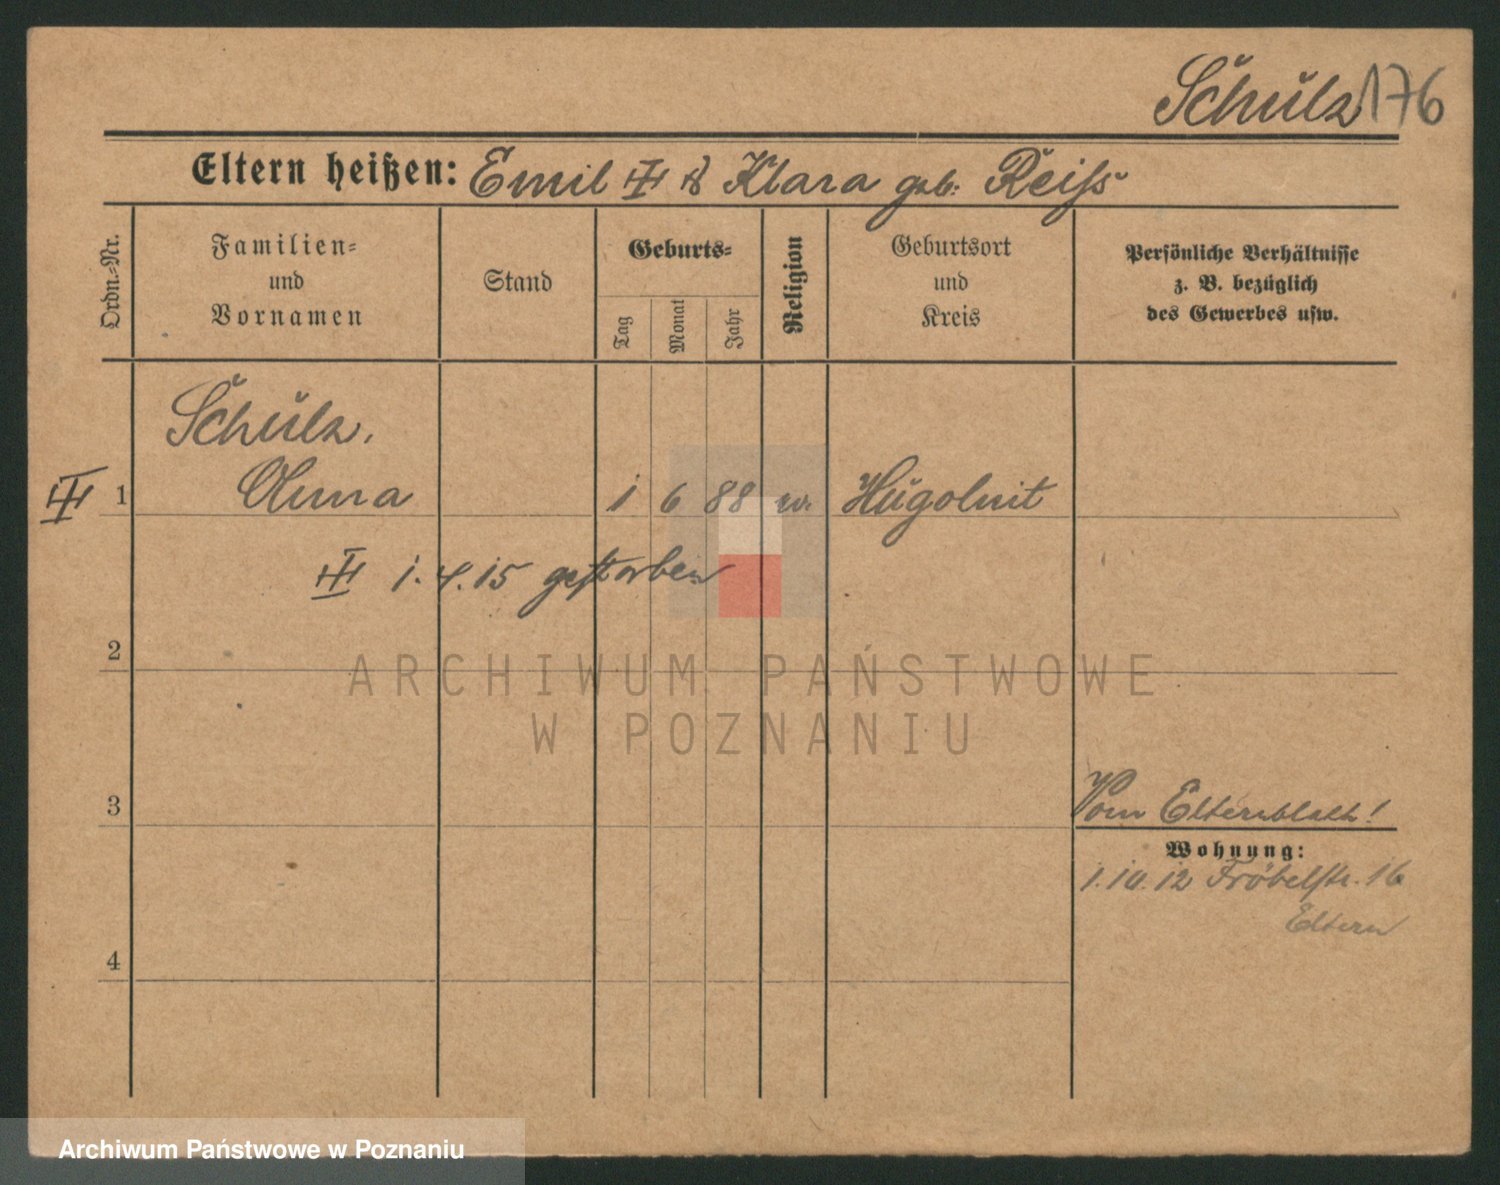 Schulz 176
Eltern heißen: Emil & Klara geb. Reiss
Ordn.-Nr.
Familien-
und
Vornamen
Stand
Geburts-
Tag
Monat
Jahr
Religion
Geburtsort
und
Kreis
Persönliche Verhältnisse
z. B. bezüglich
des Gewerbes usw.
Schulz,
1 Anna 1 6 88 ev.
1.4.15 gestorben
2
ARCHIWUM PAŃSTWOWE
W POZNANIU
3
Vom Elternblatt!
Wohnung:
1.10.12 Fröbelstr. 16
Eltern
4
Archiwum Państwowe w Poznaniu